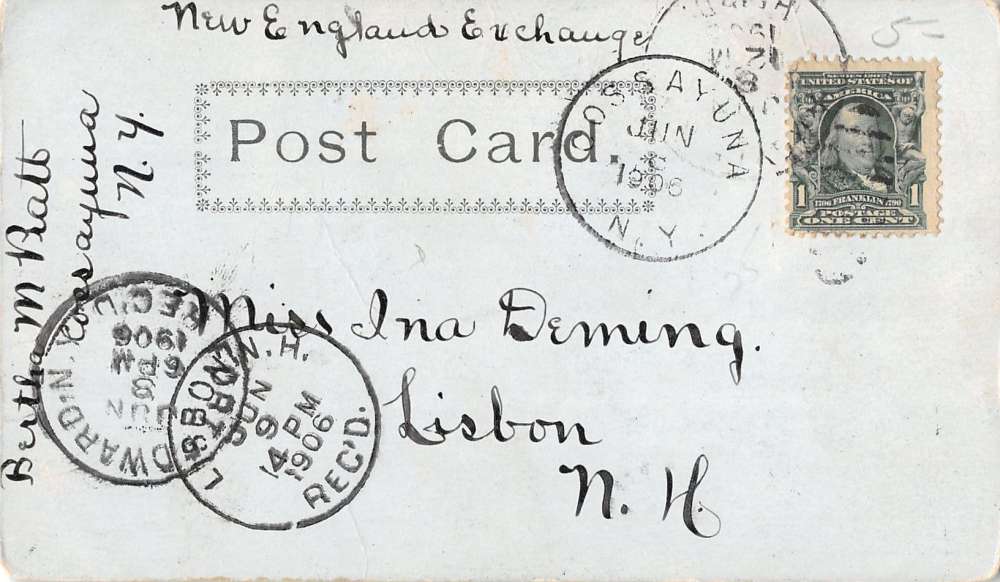 New England Exchange
5-
Post Card.
COSSAYUNA
JUN
1906
N.Y.
SERIES 1902
UNITED STATES OF
AMERICA
1 1706 FRANKLIN 1790 1
POSTAGE
ONE CENT
Bertha M Ratt
Cossayuna
N.Y.
REC'D.
1906
6 PM
8
JUN
Miss Ina Deming.
Lisbon
N. H.
LISBON, N.H.
JUN
9
4 PM
1906
REC'D.